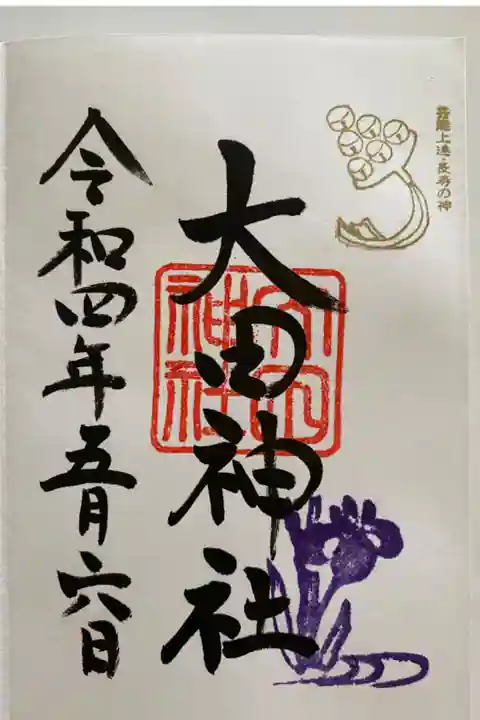 芸能上達・長寿の神
大田神社
大田
神社
令和四年五月六日